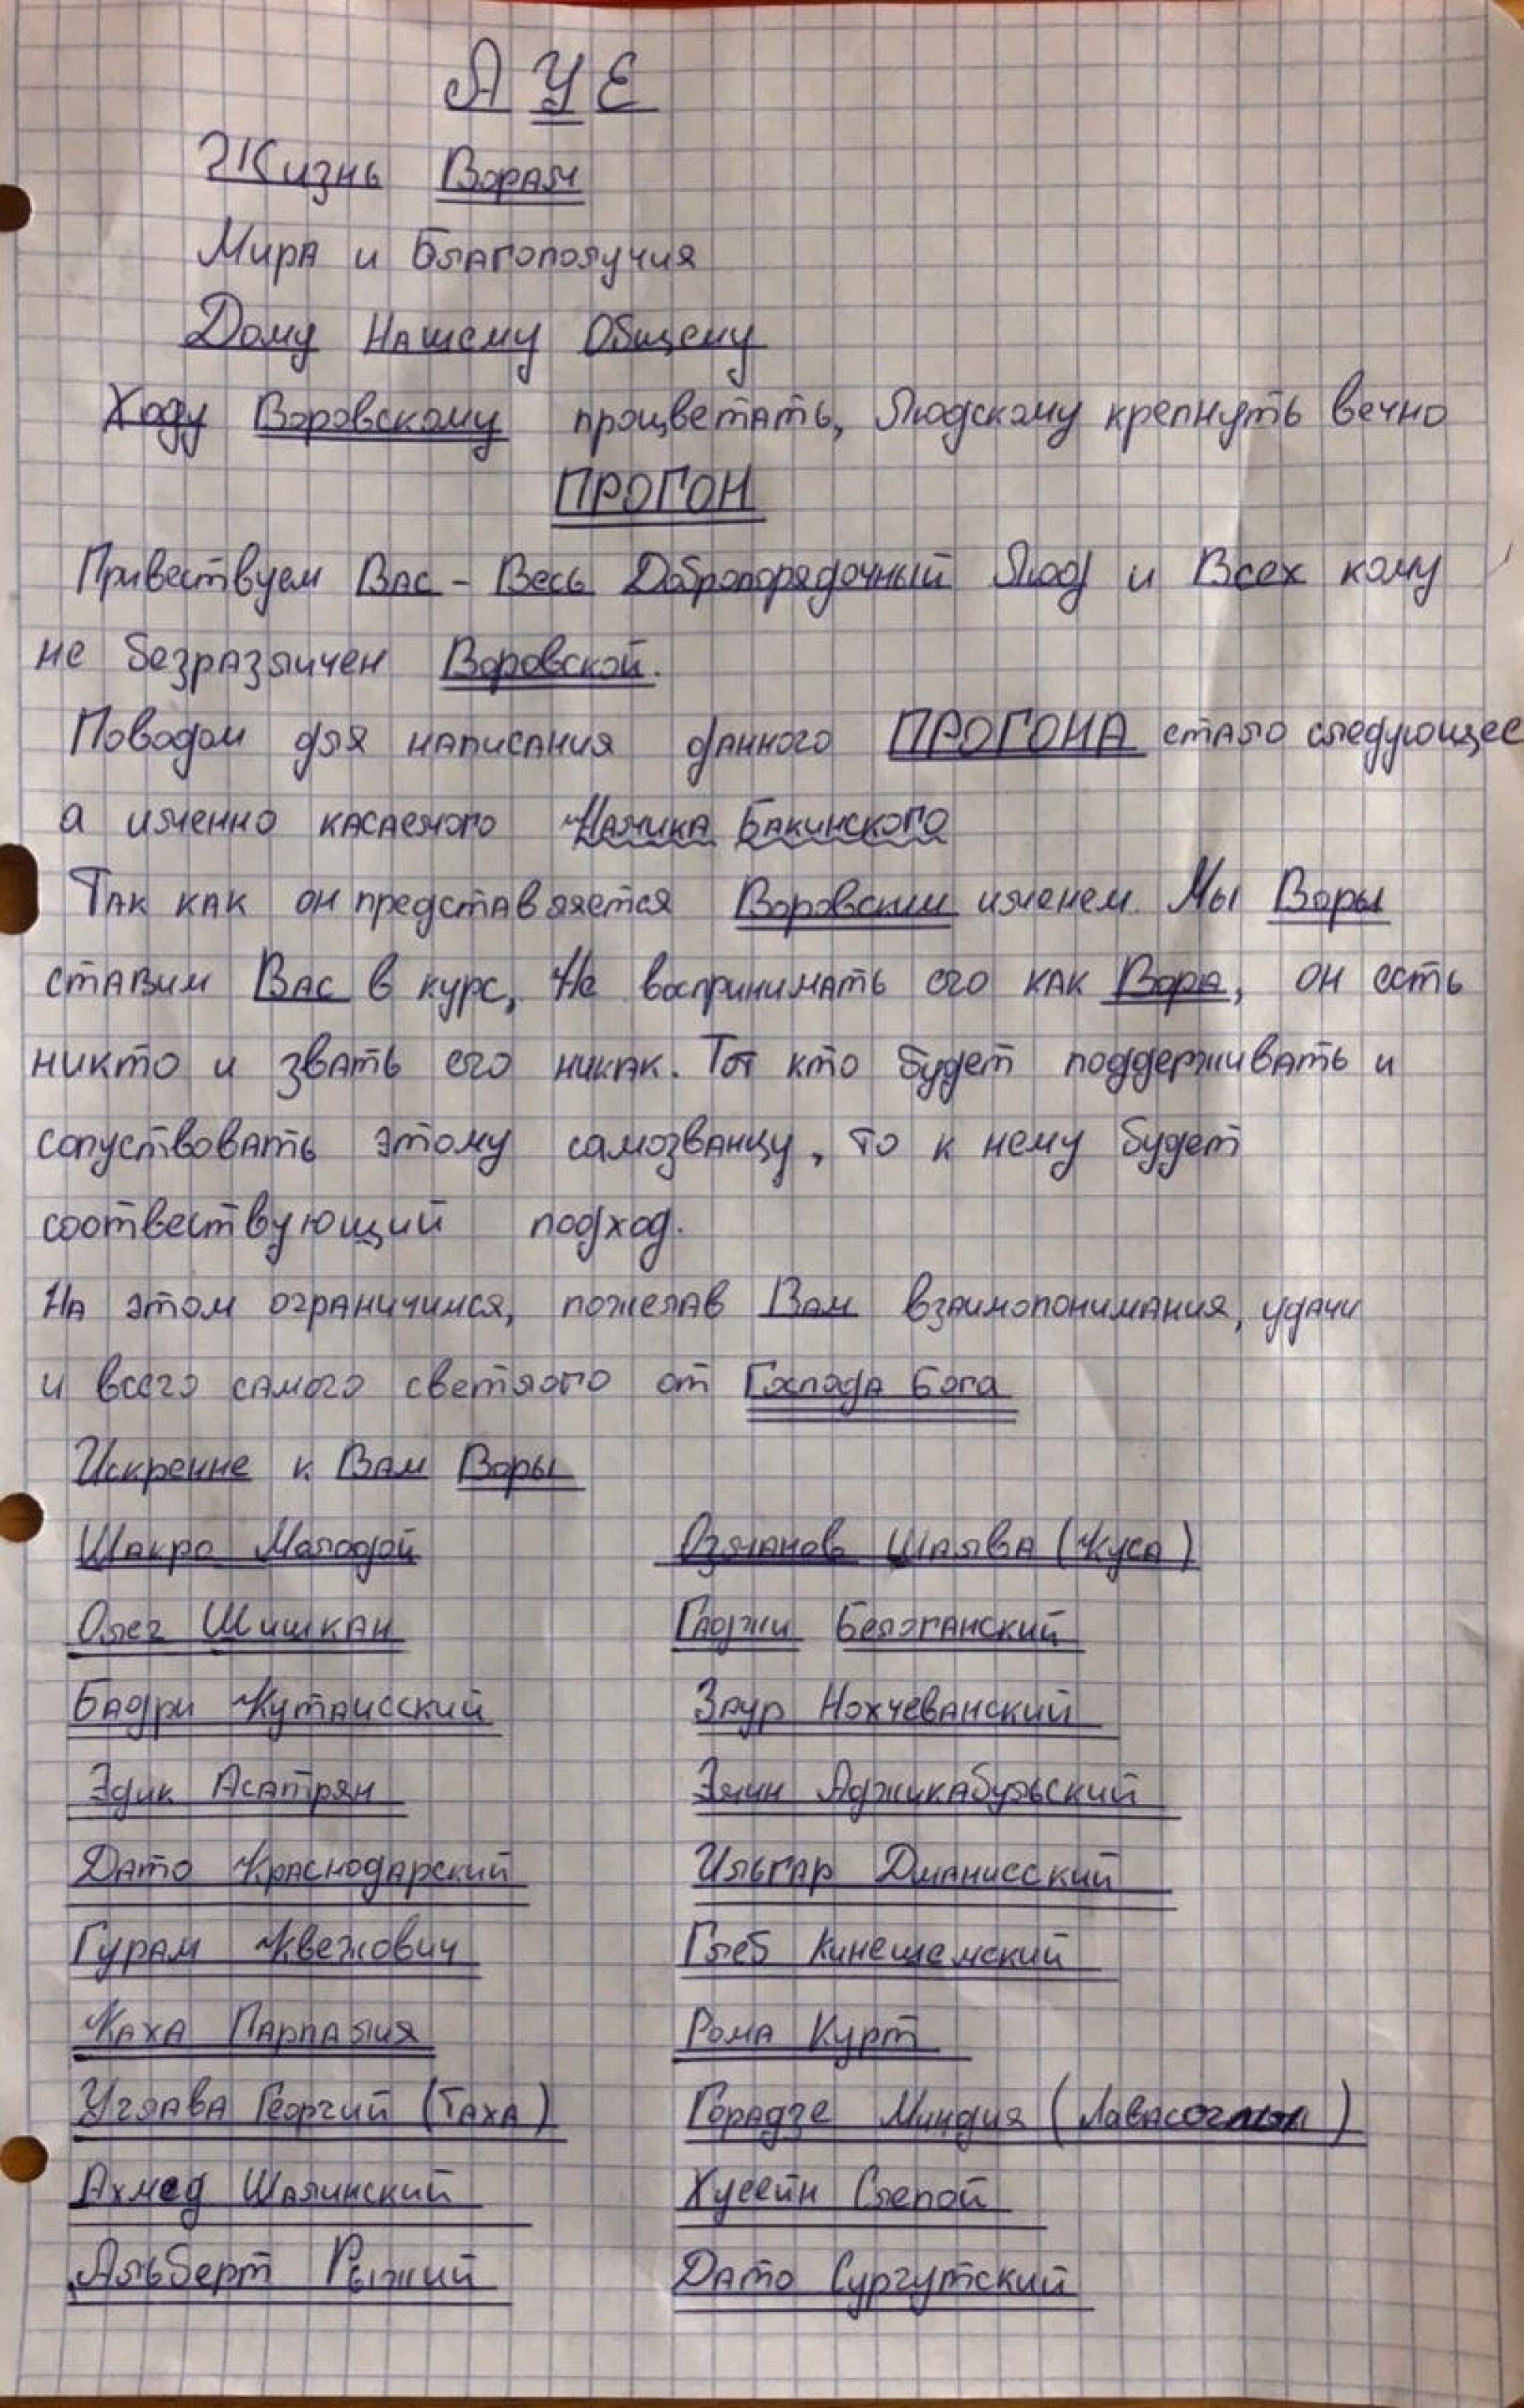 АУЕ
Жизнь Ворам
Мира и Благополучия
Дому Нашему Общему
Ходу Воровскому процветать, Людскому крепнуть вечно
ПРОГОН
Привествуем Вас - Весь Добропорядочный Люд и Всех кому
не безразличен Воровской.
Поводом для написания данного ПРОГОНА стало следующее
а именно касаемого Намика Бакинского
Так как он представляется Воровским именем. Мы Воры
ставим Вас в курс, Не воспринимать его как Вора, он есть
никто и звать его никак. Тот кто будет поддерживать и
сопуствовать этому самозванцу, то к нему будет
соотвествующий подход.
На этом ограничимся, пожелав Вам взаимопонимания, удачи
и всего самого светлого от Господа Бога
Искренне к Вам Воры
Шакро Молодой Озманов Шалва (Куса)
Олег Шишкан Гаджи Белоганский
Бадри Кутаисский Заур Нохчеванский
Эдик Асатрян Элин Аджикабульский
Дато Краснодарский Ильгар Дманисский
Гурам Квежович Глеб Кинешемский
Каха Парпалия Рома Курт
Углава Георгий (Таха) Горадзе Миндия (
Ахмед Шалинский Хусейн Слепой
Альберт Рыжий Дато Сургутский